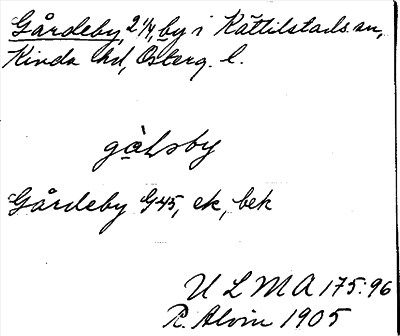 Gårdeby, 2 1/4, by i Kättilstads sn,
Kinda hd, Österg. l.
Gårdeby G45, ek, bek
U L M A 175:96
R. Alvin 1905